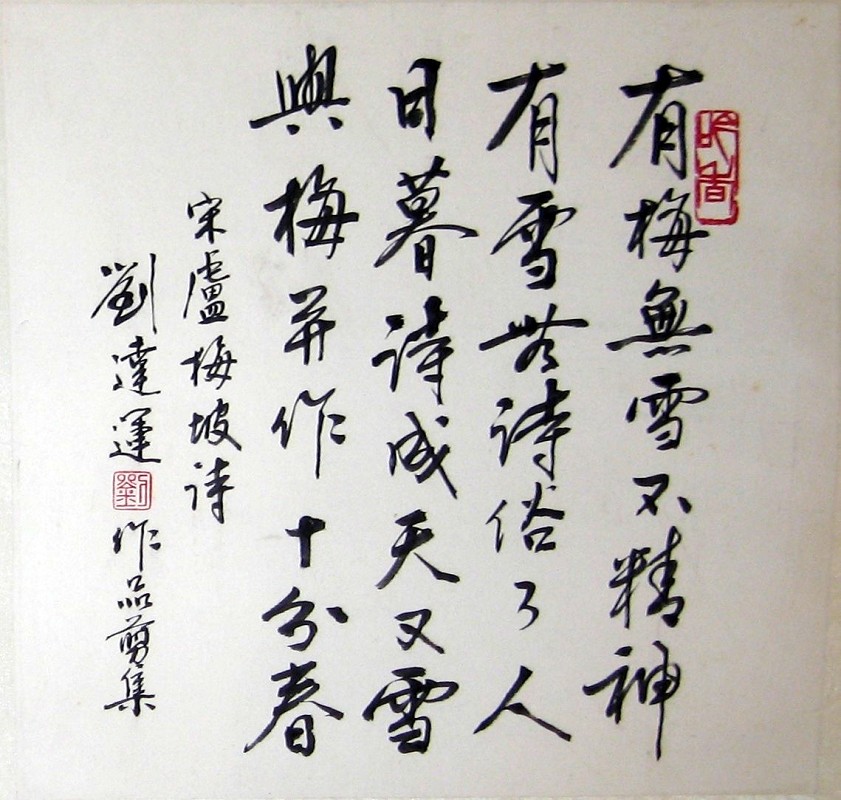 有梅無雪不精神
有雪無詩俗了人
日暮詩成天又雪
與梅并作十分春
宋盧梅坡詩
劉達運
劉
作品剪集
吟香